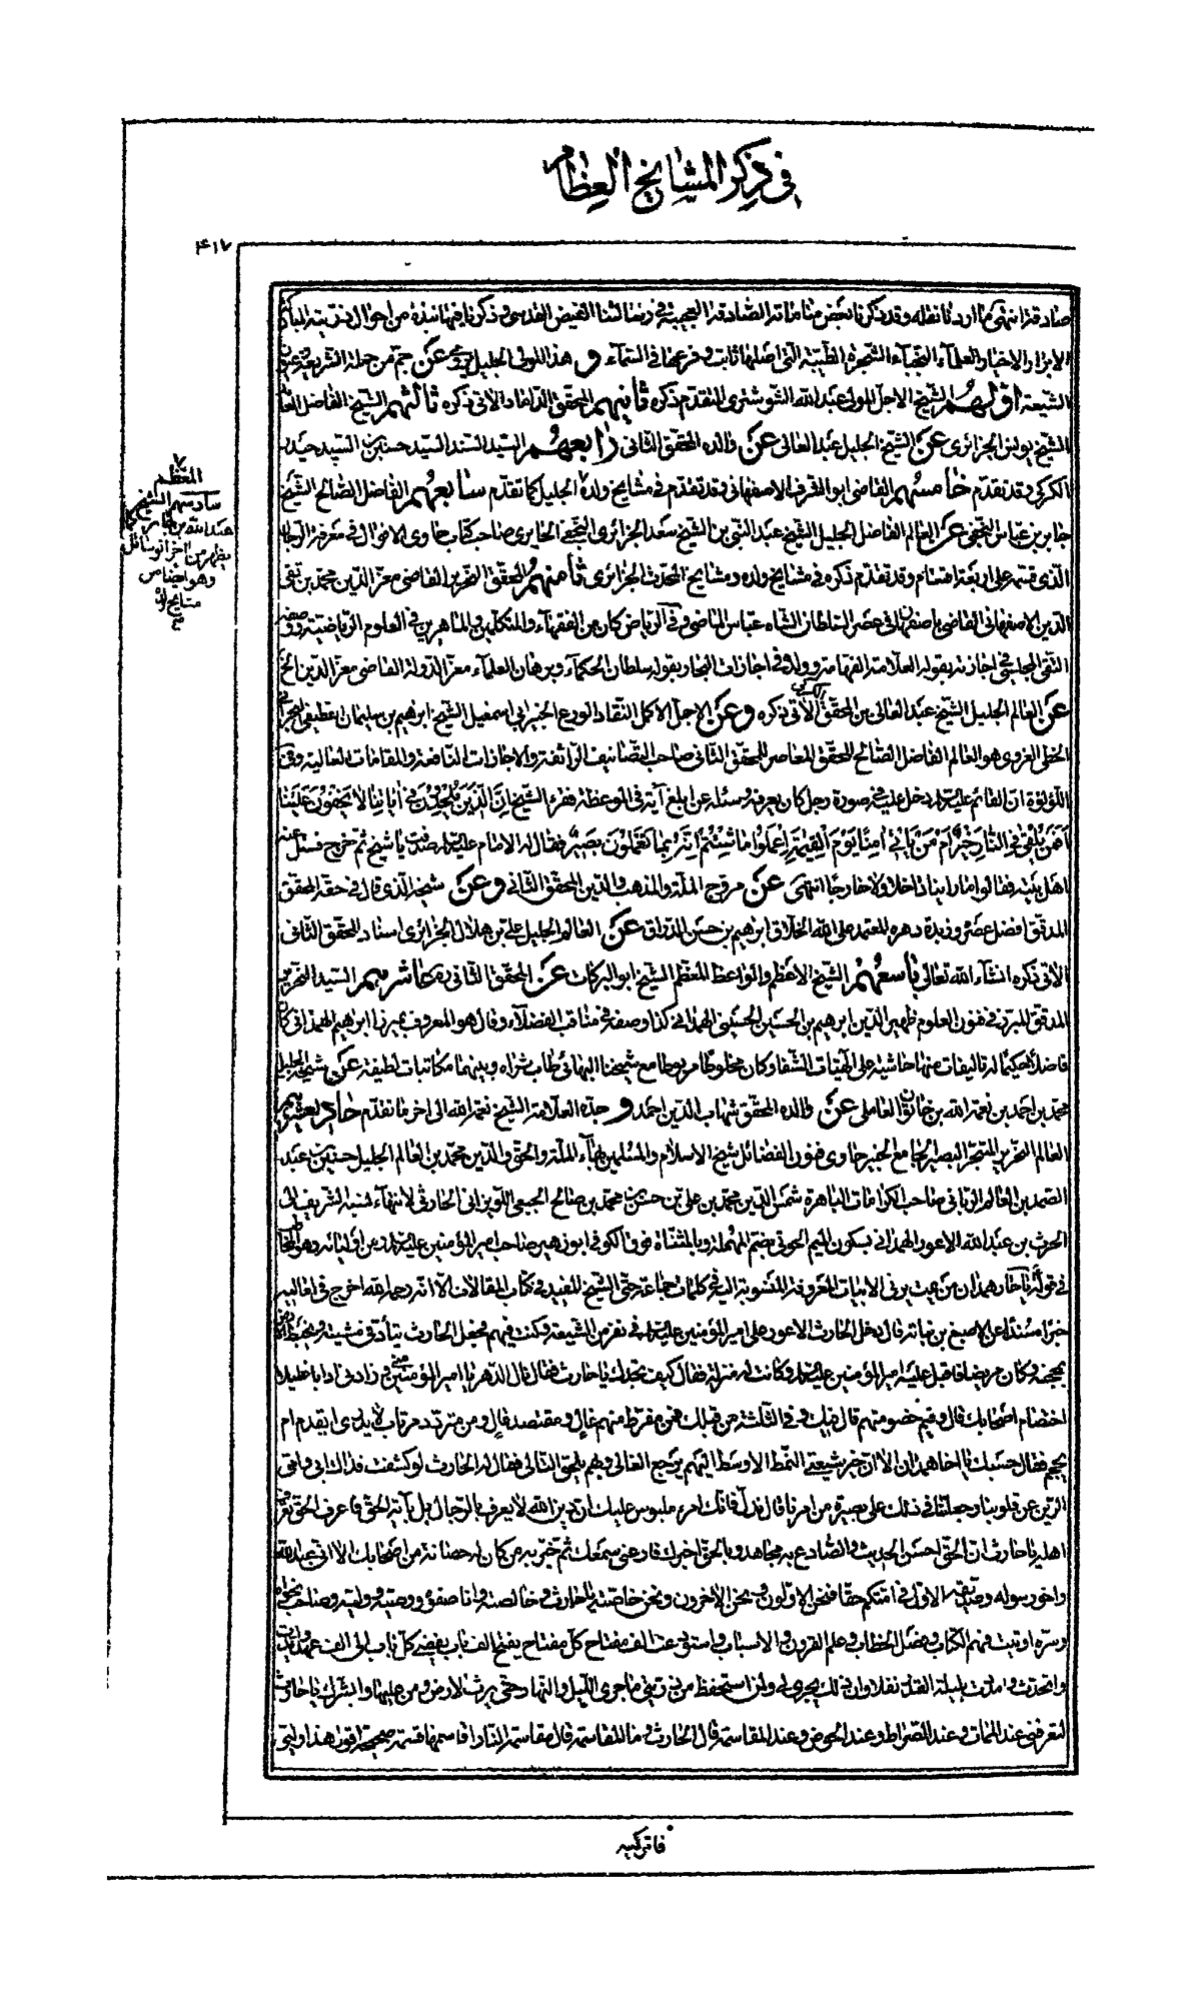 في ذكر المشايخ العظام
٤١٧
صادقة انتهى ما اردنا نقله وقد ذكرنا بعض مناماته الصادقة العجيبة في رسالتنا الفيض القدسي وذكرنا فيها نبذة من احوال ذريته
الابرار والاخيار والعلماء النجباء الشجرة الطيبة التي اصلها ثابت وفرعها في السماء و هذا المولى الجليل يروي عن جم من حملة الشريعة
الشيعة اولهم الشيخ الاجل المولى عبد الله الشوشتري المتقدم ذكره ثانيهم المحقق الداماد الاتي ذكره ثالثهم الشيخ الفاضل
الشيخ يونس الجزائري عن الشيخ الجليل عبد العالي عن والده المحقق الثاني رابعهم السيد السند السيد حسين بن السيد حيدر
الكركي وقد تقدم خامسهم القاضي ابو الشرف الاصفهاني وقد تقدم في مشايخ ولده الجليل كما تقدم سابعهم الفاضل الصالح الشيخ
جابر بن عباس النجفي عن العالم الفاضل الجليل الشيخ عبد النبي بن الشيخ سعد الجزائري النجفي الحايري صاحب كتاب حاوي الاقوال في معرفة الرجال
الذي قسمه على اربعة اقسام وقد تقدم ذكره في مشايخ ولده ومشايخ المحدث الجزائري ثامنهم المحقق النحرير القاضي معز الدين محمد بن تقي
الدين الاصفهاني القاضي باصفهان في عصر السلطان الشاه عباس الماضي وفي الرياض كان من الفقهاء والمتكلمين والماهرين في العلوم الرياضية ووصفه
التقي المجلسي في اجازته بقوله العلامة الفهامة وولده في اجازات البحار بقوله سلطان الحكماء وبرهان العلماء معز الدولة القاضي معز الدين الخ
عن العالم الجليل الشيخ عبد العالي بن المحقق الكركي الاتي ذكره وعن الاجل الاكمل النقاد الورع الخبر ابي اسمعيل الشيخ ابرهيم بن سليمان القطيفي البحراني
الحلي الغروي هو العالم الفاضل الصالح المحقق المعاصر للمحقق الثاني صاحب التصانيف الرائقة والاجازات النافعة والمقامات العالية وفي
اللؤلؤة ان القائم عليه السلام دخل عليه في صورة رجل كان يعرفه وسئله عن ابلغ آية في الموعظة فقرء الشيخ ان الذين يلحدون في اياتنا لا يخفون علينا
افمن يلقى في النار خير ام من ياتي امنا يوم القيمة اعملوا ما شئتم انه بما تعملون بصير فقال له الامام عليه السلام صدقت يا شيخ ثم خرج فسئل عنه
اهل بيته فقالوا ما راينا داخلا ولا خارجا انتهى عن مروج الملة والمذهب والدين المحقق الثاني وعن شيخه الذي قال في حقه المحقق
المدقق افضل عصره وزبدة دهره المعتمد على الله الخلاق ابرهيم بن حسن الذراق عن العالم الجليل علي بن هلال الجزائري استاد المحقق الثاني
الاتي ذكره انشاء الله تعالى تاسعهم الشيخ الاعظم والواعظ المعظم الشيخ ابو البركات عن المحقق الثاني ره عاشرهم السيد النحرير
المدقق المبرز في فنون العلوم ظهير الدين ابرهيم بن الحسين الحسني الهمداني كذا وصفه في مناقب الفضلاء وقال هو المعروف بميرزا ابرهيم الهمداني كان
فاضلا حكيما له تاليفات منها حاشيته على الهيات الشفا وكان مخلوطا مربوطا مع شيخنا البهائي طاب ثراه وبينهما مكاتبات لطيفة عن شيخه الجليل
محمد بن احمد بن نعمة الله بن خاتون العاملي عن والده المحقق شهاب الدين احمد و جده العلامة الشيخ نعمة الله الى اخر ما تقدم حادي عشرهم
العالم النحرير المتبحر البصير الجامع الخبير حاوي فنون الفضائل شيخ الاسلام والمسلمين بهاء الملة والحق والدين محمد بن العالم الجليل حسين بن عبد
الصمد بن العالم الرباني صاحب الكرامات الباهرة شمس الدين محمد بن علي بن حسين بن محمد بن صالح الجبعي اللويزاني الحارثي لانتهاء نسبه الشريف الى
الحرث بن عبد الله الاعور الهمداني بسكون الميم الحوتي بضم المهملة وبالمثناة فوق الكوفي ابو زهير صاحب امير المؤمنين عليه السلام ومن اوليائه وهو
في قوله يا حار همدان من يمت يرني الابيات المعروفة المنسوبة اليه في كلمات جماعة حتى الشيخ المفيد في كتاب المقالات الا انه رحمه الله اخرج في اماليه
خبرا مسندا عن الاصبغ بن نباته قال دخل الحارث الاعور على امير المؤمنين عليه السلام في نفر من الشيعة فكنت فيهم فجعل الحارث يتأدق في مشيته ويخبط الارض
بمحجنه وكان مريضا فاقبل عليه امير المؤمنين عليه السلام وكانت له منزلة فقال كيف نجدك يا حارث فقال نال الدهر يا امير المؤمنين مني وزادني اوابا غليلا
اختصام اصحابك قال وفيم خصومتهم قال فيك وفي الثلثة من قبلك فمن مفرط منهم غال ومقتصد قال ومن متردد مرتاب لا يدري ايقدم ام
يحجم فقال حسبك يا اخا همدان الا ان خير شيعتي النمط الاوسط اليهم يرجع الغالي وبهم يلحق التالي فقال له الحارث لو كشفت فداك ابي وامي
الرين عن قلوبنا وجعلتنا في ذلك على بصيرة من امرنا قال قدك فانك امرء ملبوس عليك ان دين الله لا يعرف بالرجال بل بآية الحق فاعرف الحق تعرف
اهله يا حارث ان الحق احسن الحديث والصادع به مجاهد وبالحق اخبرك فارعني سمعك ثم خبر به من كان له حصانة من اصحابك الا اني عبد الله
واخو رسوله وصديقه الاول في امتكم حقا فنحن الاولون ونحن الاخرون ونحن خاصته يا حارث وخالصته وانا صفوه ووصيه ووليه وصاحب نجواه
وسره اوتيت فهم الكتاب وفصل الخطاب وعلم القرون والاسباب واستودعت الف مفتاح كل مفتاح يفتح الف باب يفضي كل باب الى الف عهد وايدت
واتخذت وامددت بليلة القدر نفلا وان ذلك يجري لي ولمن استحفظ من ذريتي ما جرى الليل والنهار حتى يرث الارض ومن عليها وابشرك يا حارث
لتعرفني عند الممات وعند الصراط وعند الحوض وعند المقاسمة قال الحارث وما المقاسمة قال مقاسمة النار اقاسمها قسمة صحيحة اقول هذا وليي
المعظم
سادسهم الشيخ
عبد الله بن جابر
يظهر من اخر الوسائل
مشايخ ولده
فاتركيه